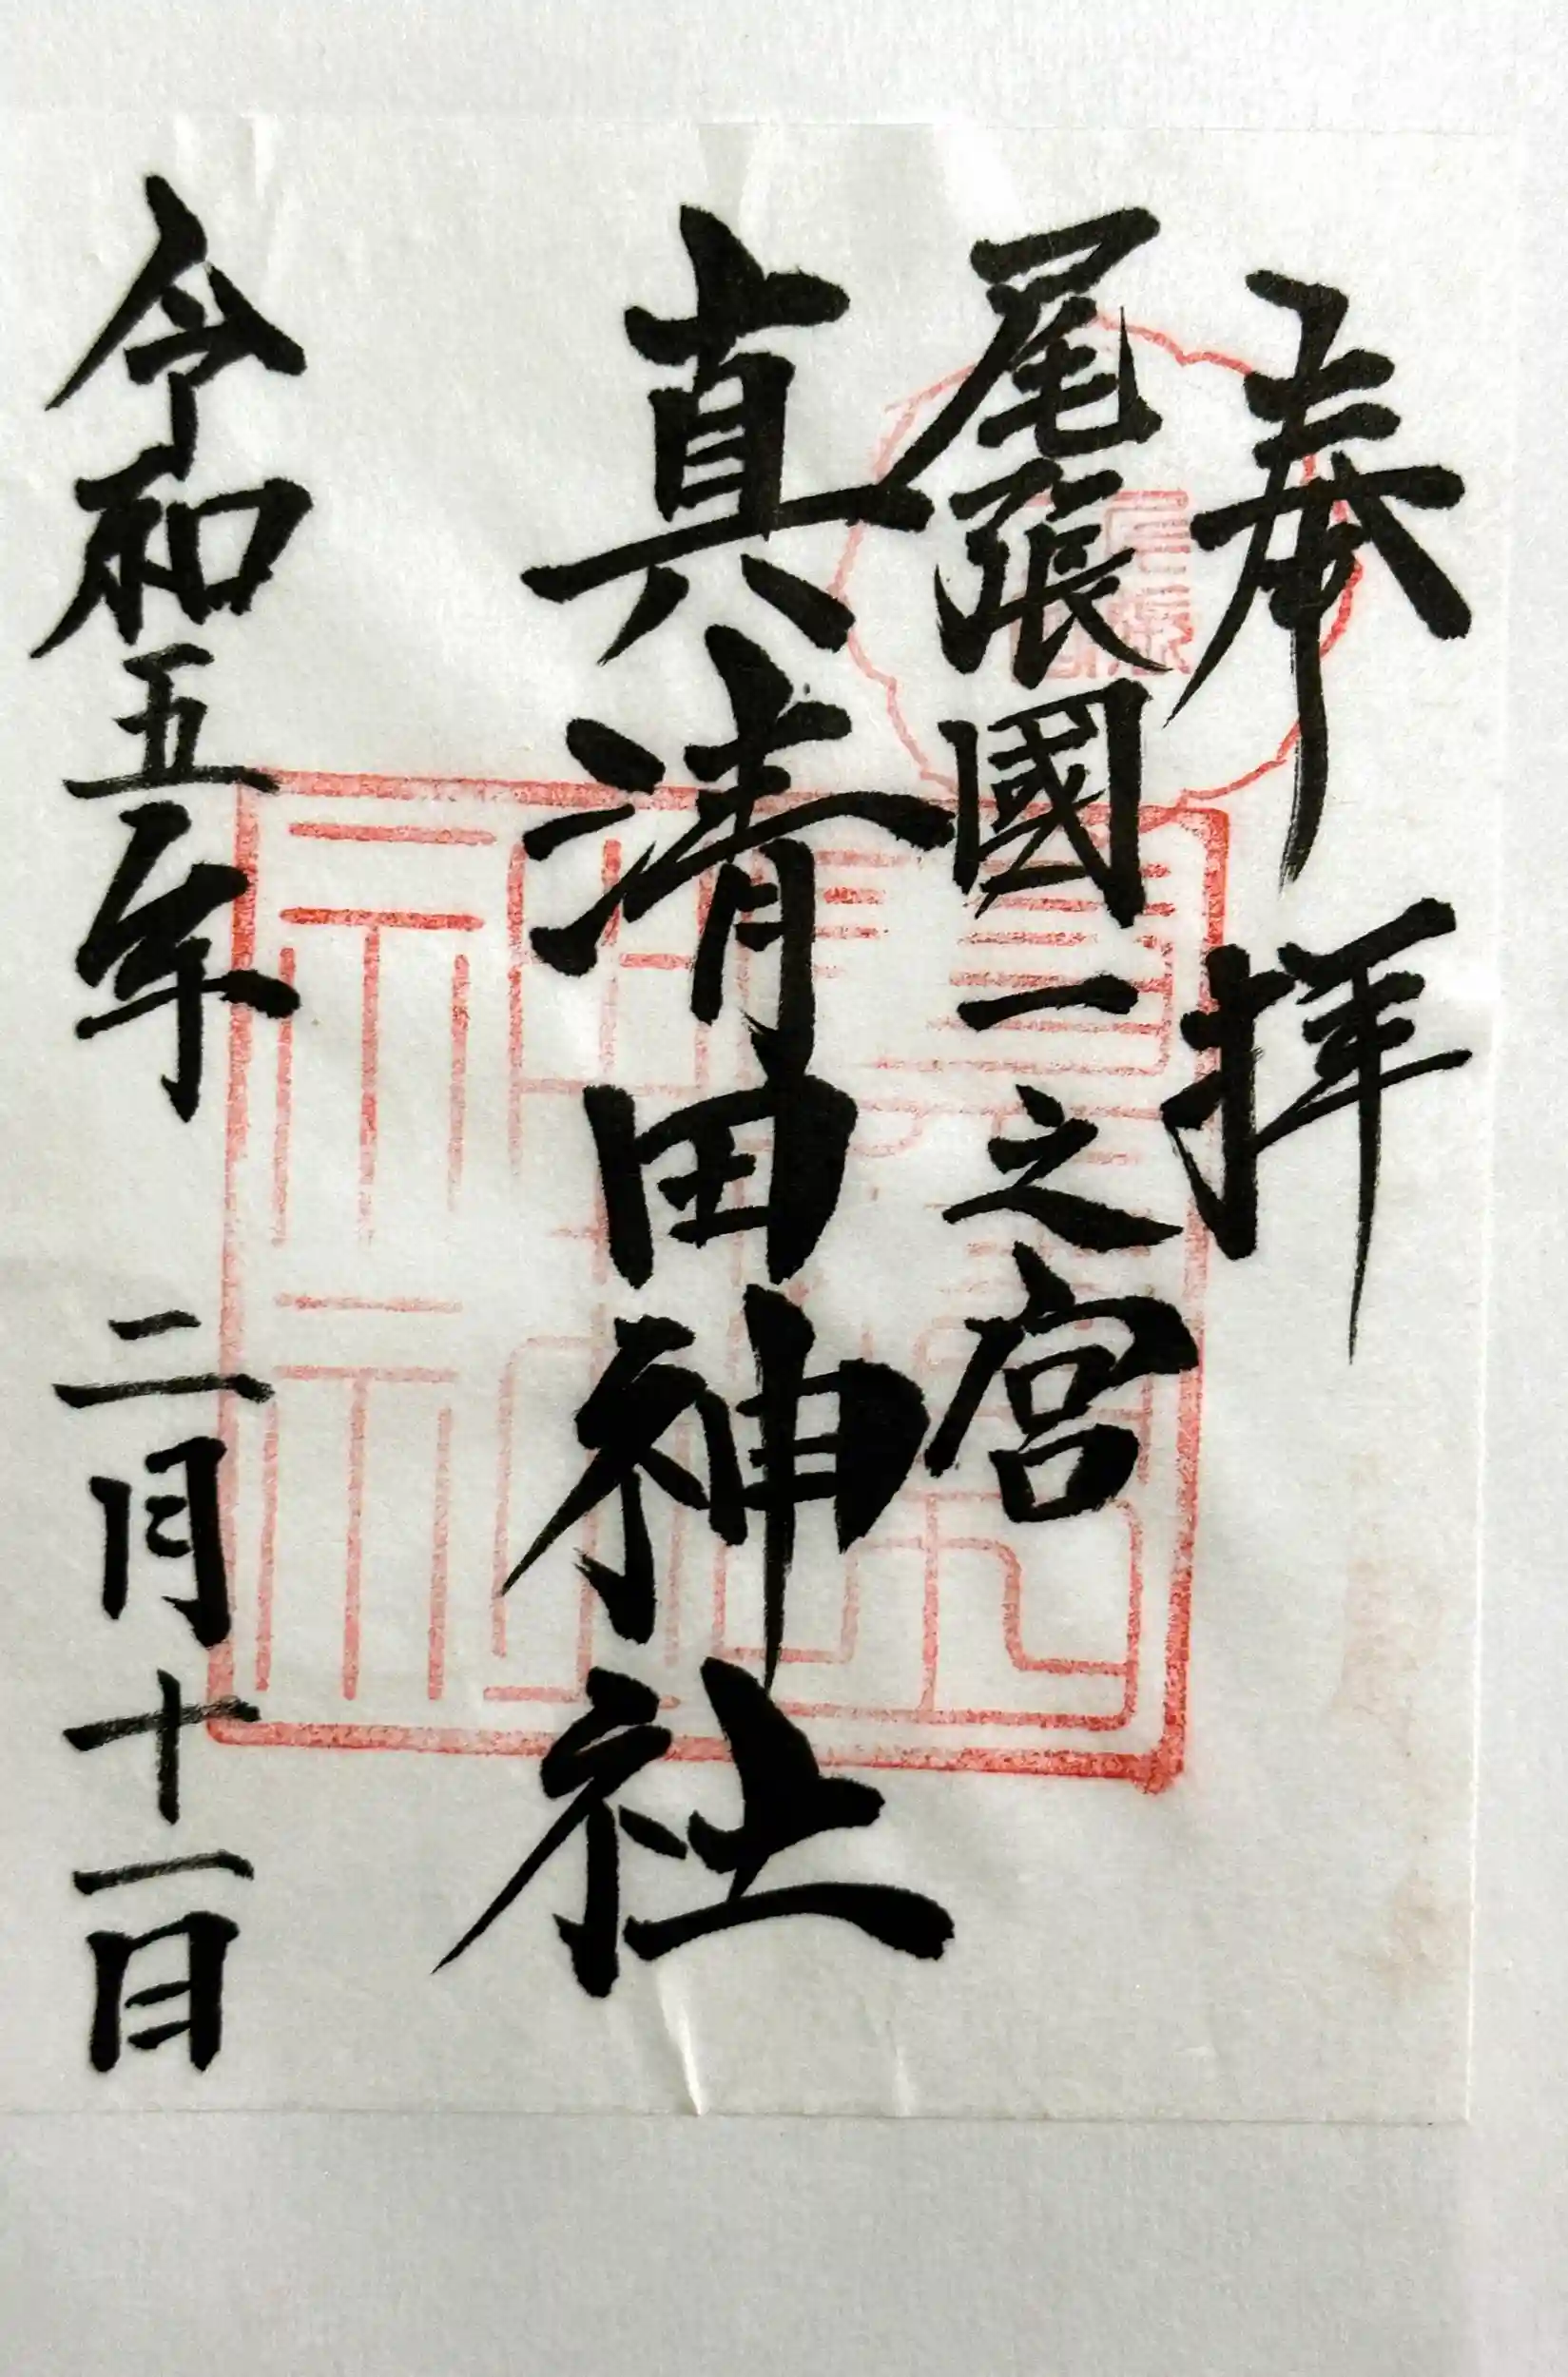 奉拝
尾張國一之宮
真清田神社
令和五年二月十一日